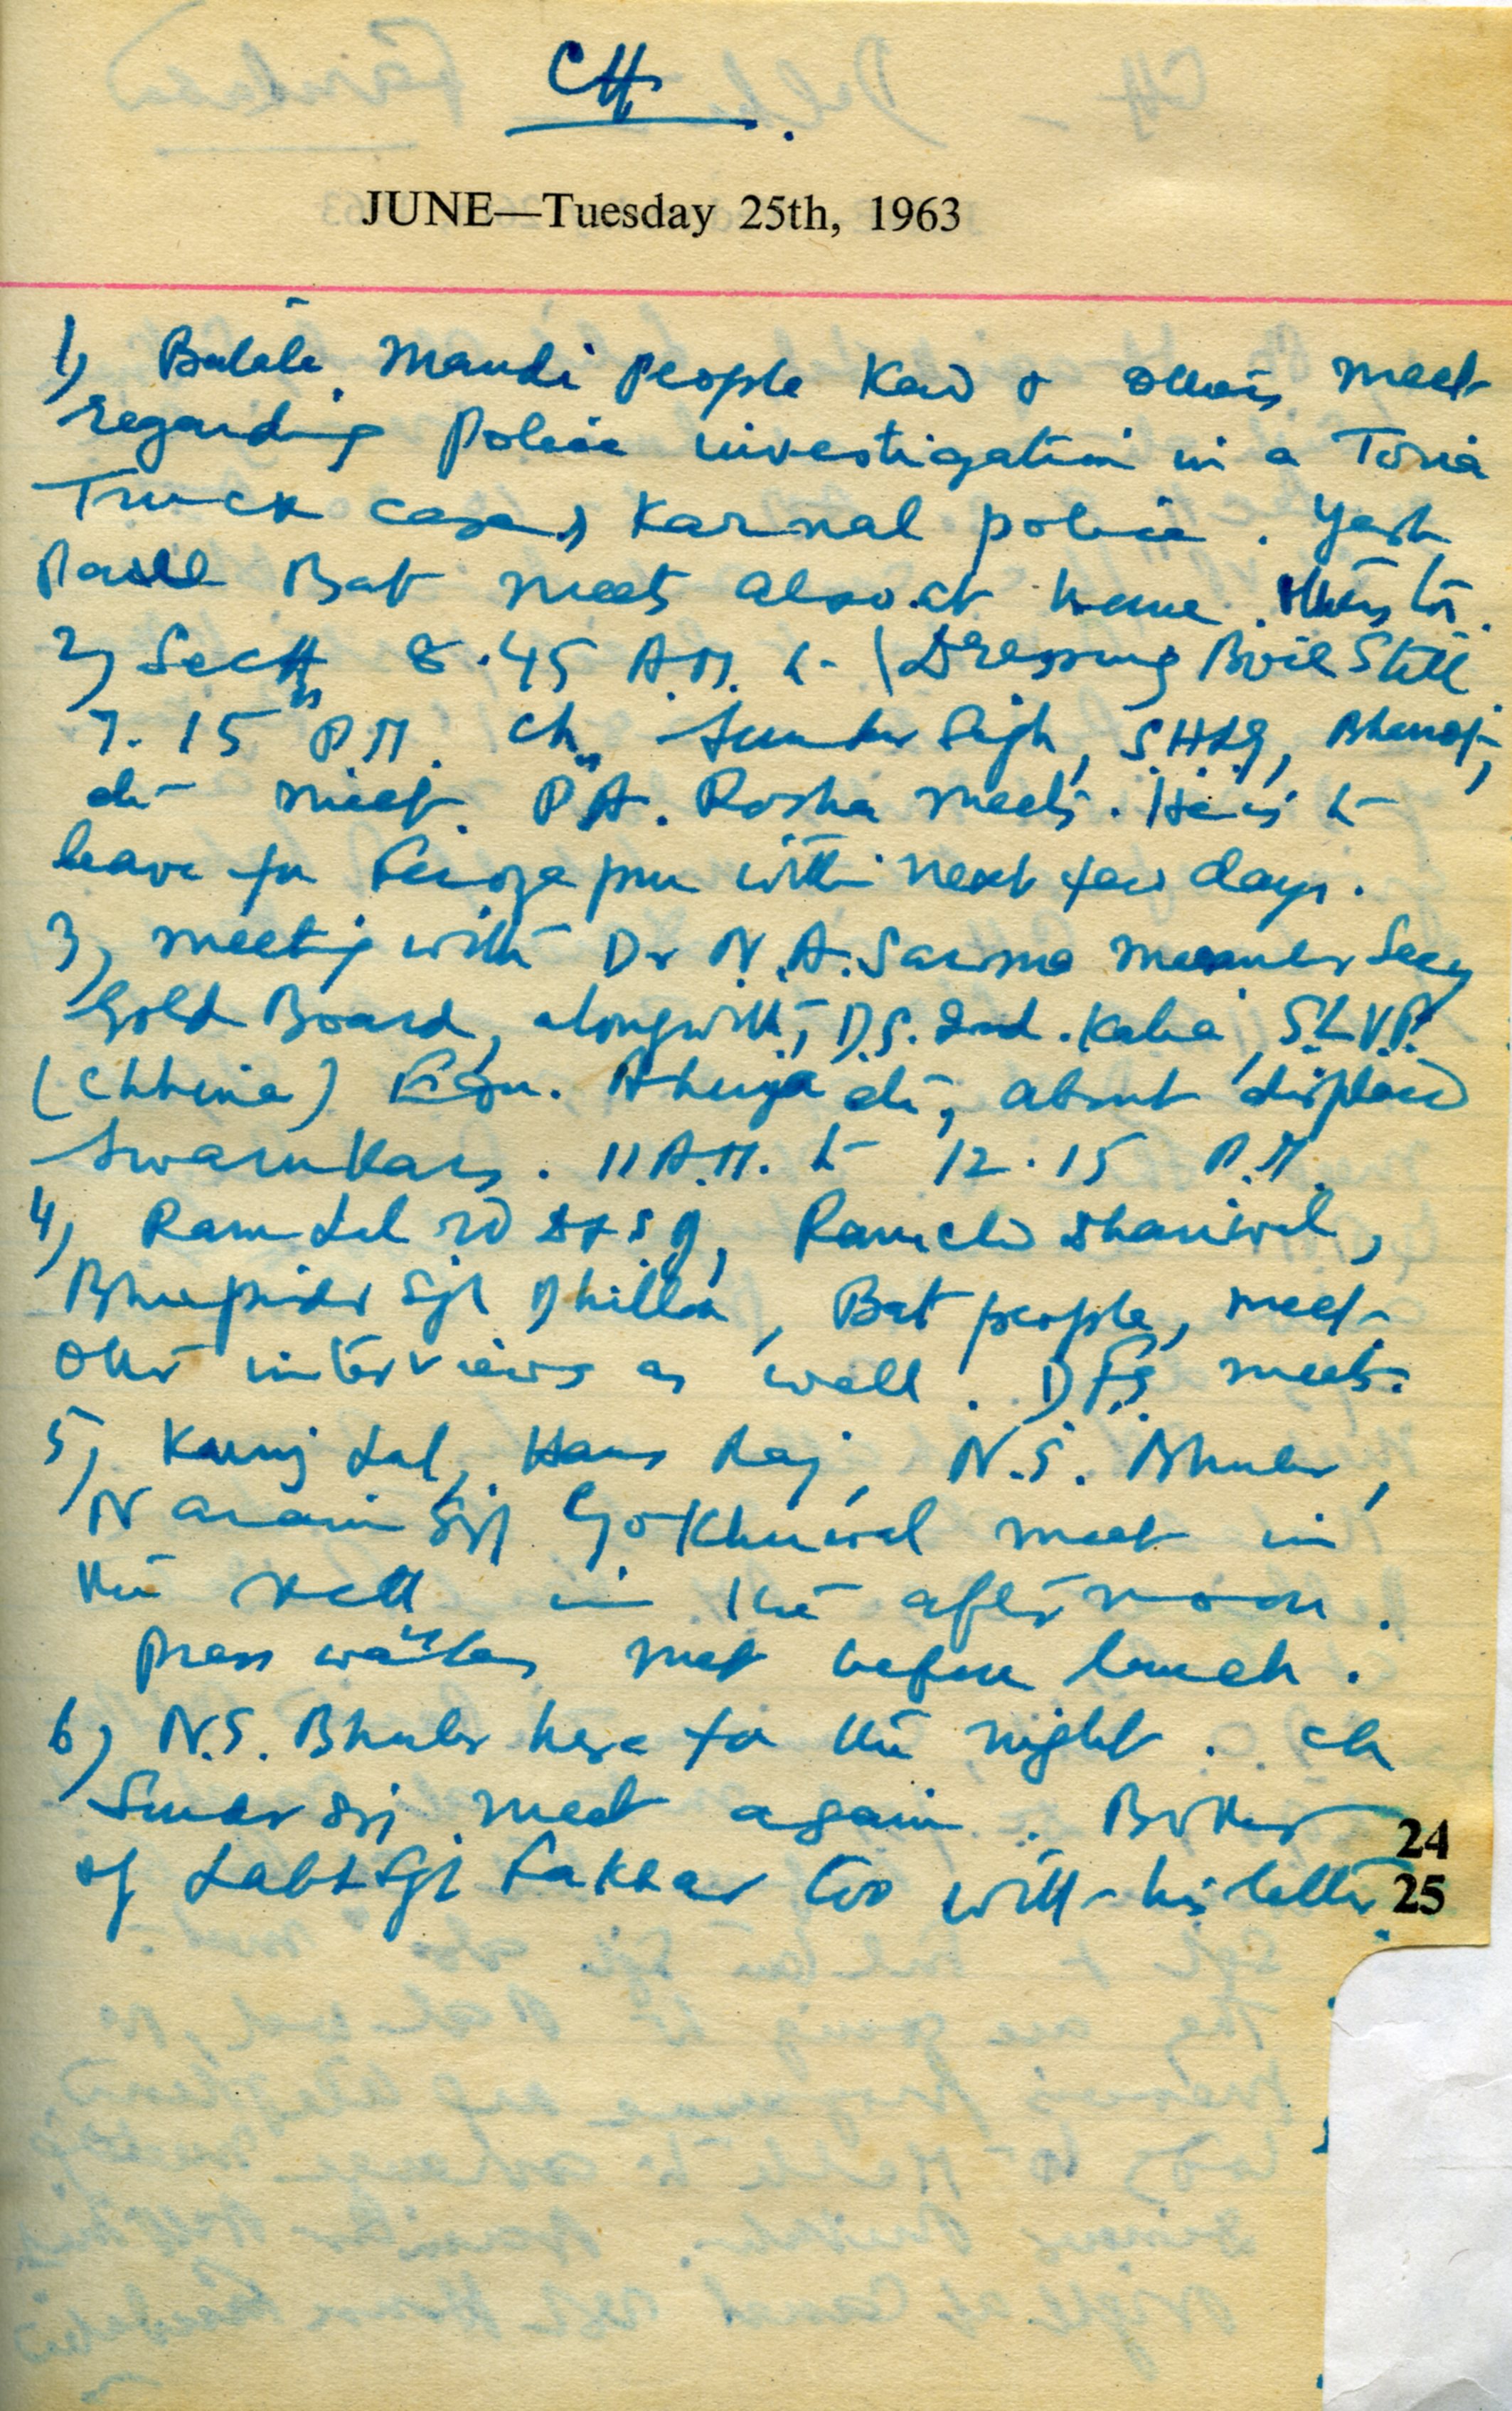 CH.
JUNE—Tuesday 25th, 1963
1) Batala Mandi people Kad & others meet
regarding police investigation in a Toria
Truck case, Karnal police. Yash
Paul Bat meets also at home. others too.
2) Sectt 8.45 A.M. to (Dressing Boil Still
7.15 P.M. Ch. Sunder Singh, S.H.S.G, Bhanot,
etc meet. P.A. Rosha meets. He is to
leave for Ferozepur within next few days.
3) Meeting with Dr N.A. Sarma Member Secy
Gold Board, alongwith, D.S. Ind. Kalia, S.L.V.P.
(Chhina) Ahuja etc, about displaced
Swarnkars. 11 A.M. to 12.15 P.M.
4) Ram Lal Ramch Dhariwal,
Bhupinder Sgh Dhillon, Bat people, meet.
Other interviews as well. DFS meets.
5) Kunj Lal, Hans Raj, N.S. Bhuler,
Narain Sgh Gokhuwal meet in
the sectt in the afternoon.
press walas met before lunch.
6) N.S. Bhuler here for the night. Ch
Sunder Sgh meet again. Brother
of Labh Sgh Fakhar too with his letter.
24
25